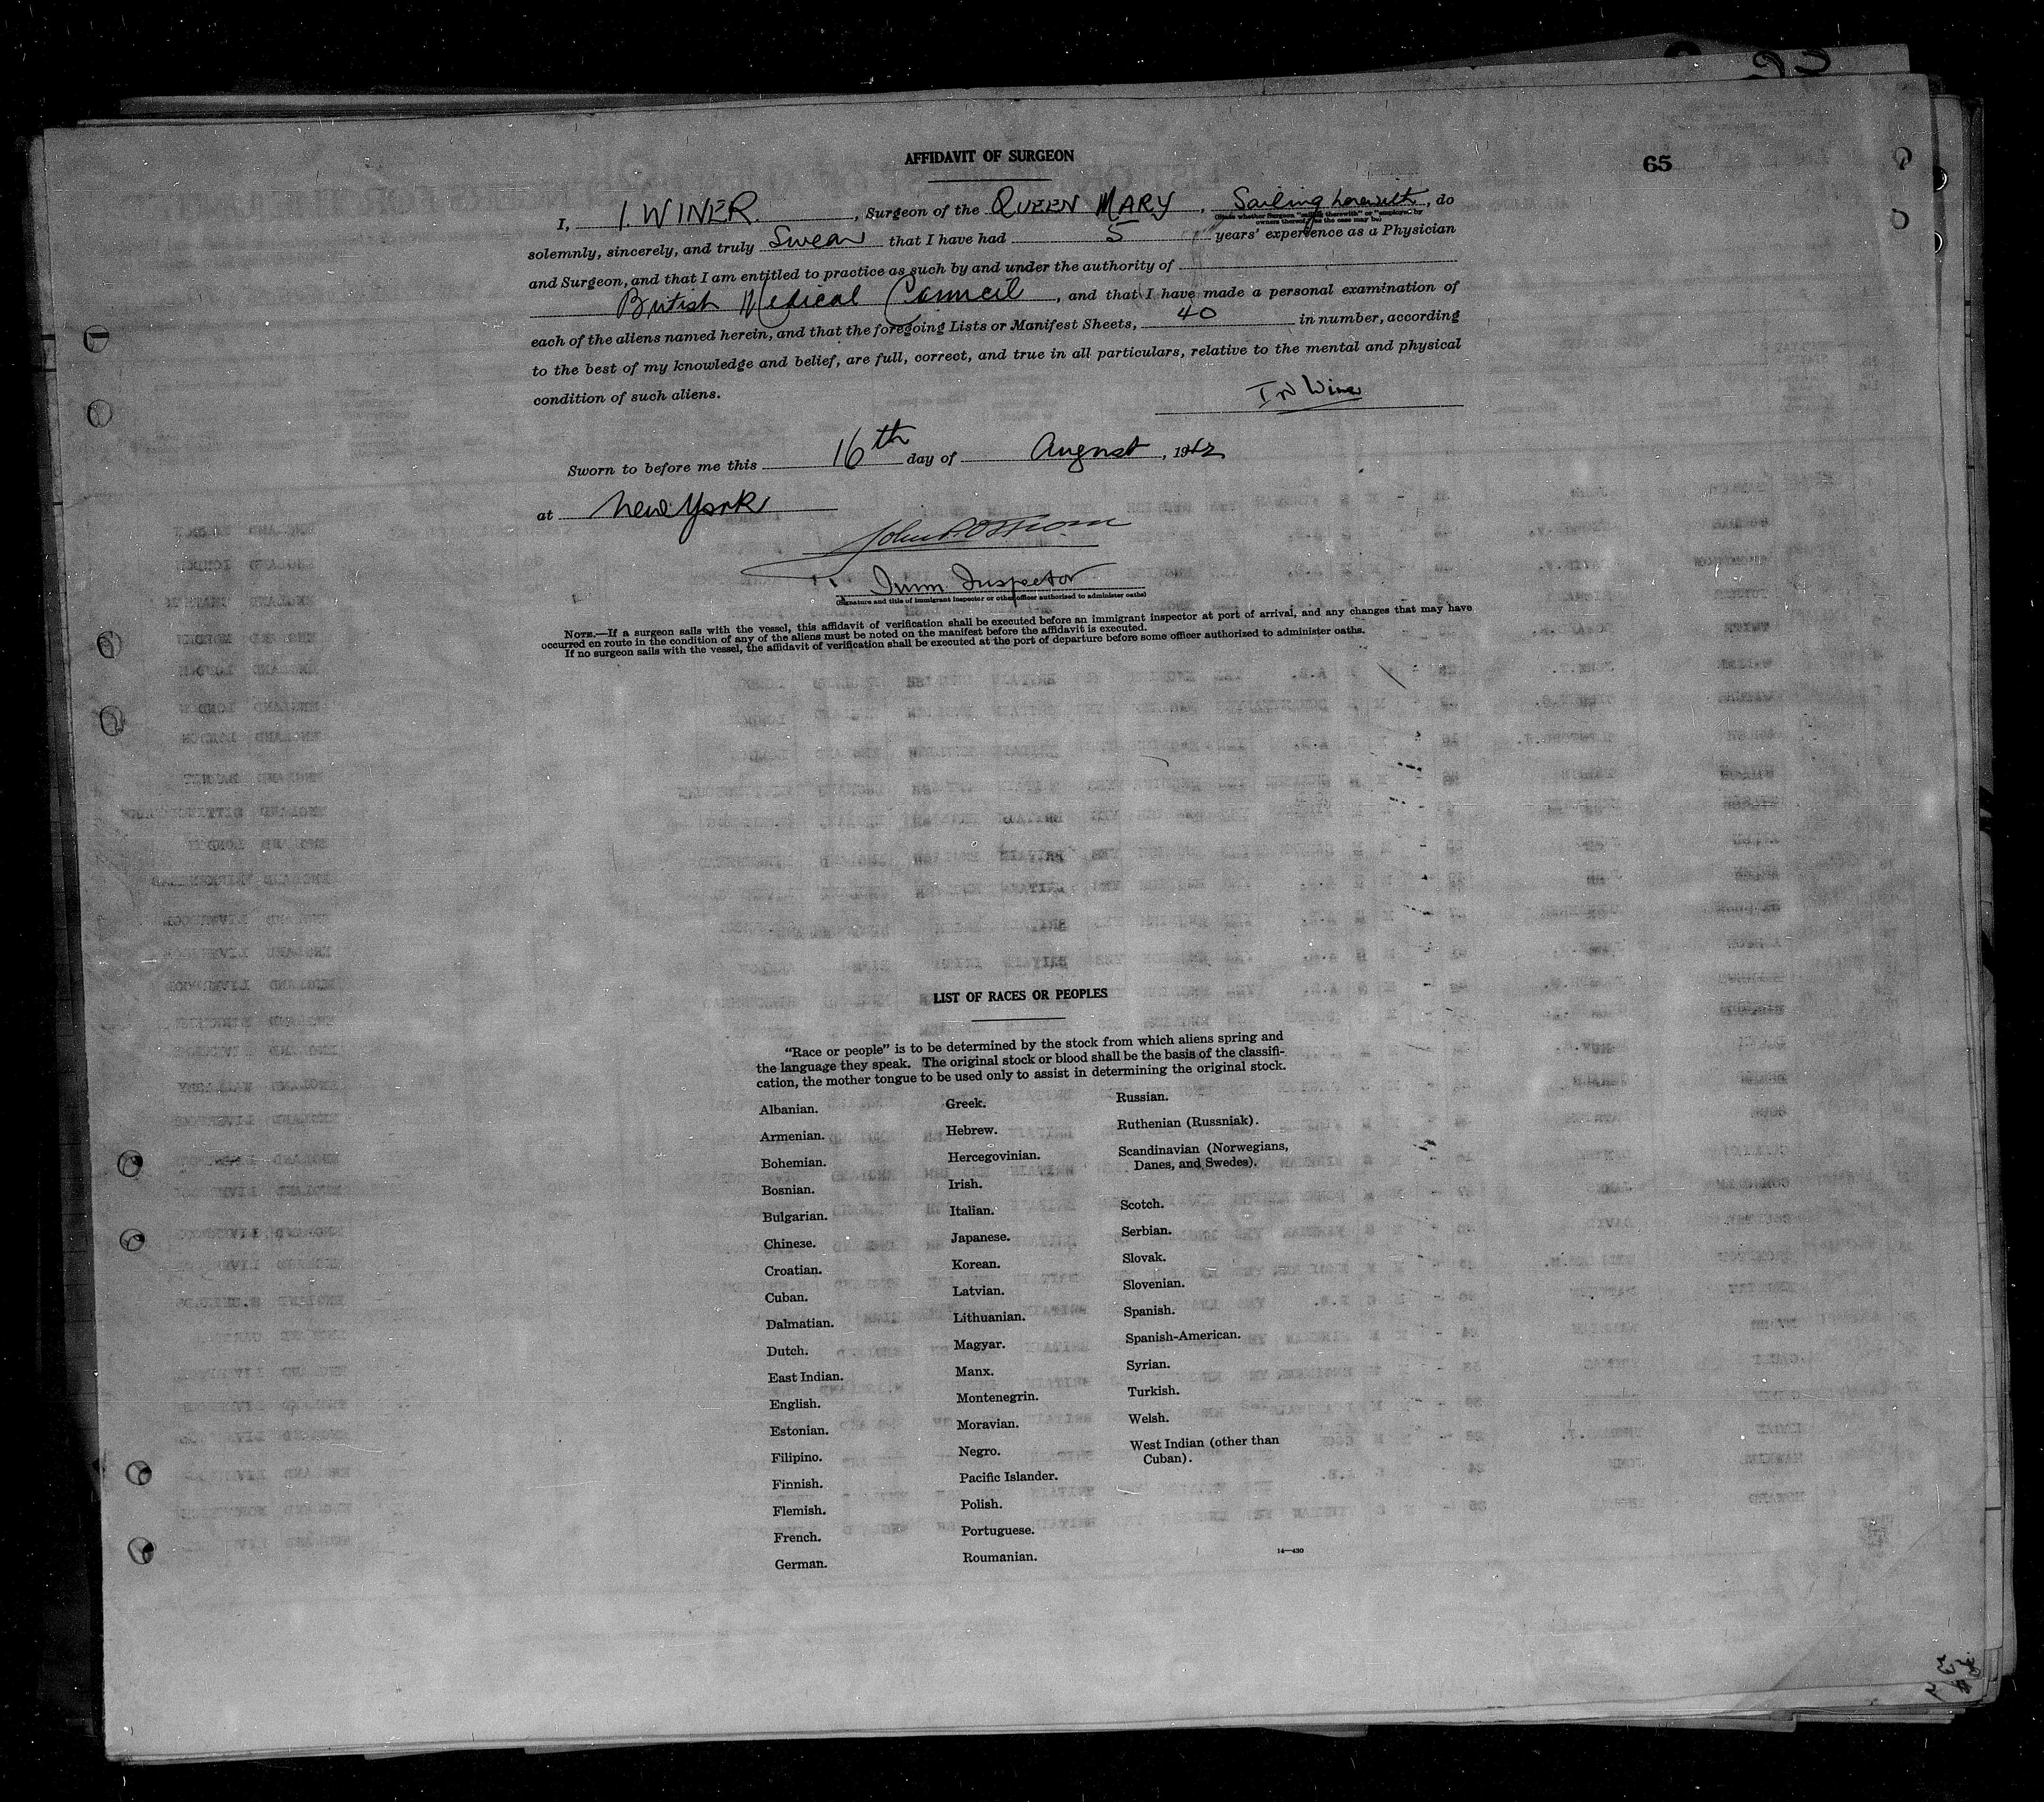 AFFIDAVIT OF SURGEON
65
I, I. WINER, Surgeon of the QUEEN MARY, Sailing herewith, do
(State whether Surgeon "sailing therewith" or "employed by
owners thereof," as the case may be.)
solemnly, sincerely, and truly Swear that I have had 5 years' experience as a Physician
and Surgeon, and that I am entitled to practice as such by and under the authority of
British Medical Council, and that I have made a personal examination of
each of the aliens named herein, and that the foregoing Lists or Manifest Sheets, 40 in number, according
to the best of my knowledge and belief, are full, correct, and true in all particulars, relative to the mental and physical
condition of such aliens.
Winer
Sworn to before me this 16th day of August, 1942
at New York
John
Imm Inspector
(Signature and title of immigrant inspector or other officer authorized to administer oaths)
NOTE.—If a surgeon sails with the vessel, this affidavit of verification shall be executed before an immigrant inspector at port of arrival, and any changes that may have
occurred en route in the condition of any of the aliens must be noted on the manifest before the affidavit is executed.
If no surgeon sails with the vessel, the affidavit of verification shall be executed at the port of departure before some officer authorized to administer oaths.
LIST OF RACES OR PEOPLES
"Race or people" is to be determined by the stock from which aliens spring and
the language they speak. The original stock or blood shall be the basis of the classifi-
cation, the mother tongue to be used only to assist in determining the original stock.
Albanian.
Armenian.
Bohemian.
Bosnian.
Bulgarian.
Chinese.
Croatian.
Cuban.
Dalmatian.
Dutch.
East Indian.
English.
Estonian.
Filipino.
Finnish.
Flemish.
French.
German.
Greek.
Hebrew.
Hercegovinian.
Irish.
Italian.
Japanese.
Korean.
Latvian.
Lithuanian.
Magyar.
Manx.
Montenegrin.
Moravian.
Negro.
Pacific Islander.
Polish.
Portuguese.
Roumanian.
Russian.
Ruthenian (Russniak).
Scandinavian (Norwegians,
Danes, and Swedes).
Scotch.
Serbian.
Slovak.
Slovenian.
Spanish.
Spanish-American.
Syrian.
Turkish.
Welsh.
West Indian (other than
Cuban).
14—430